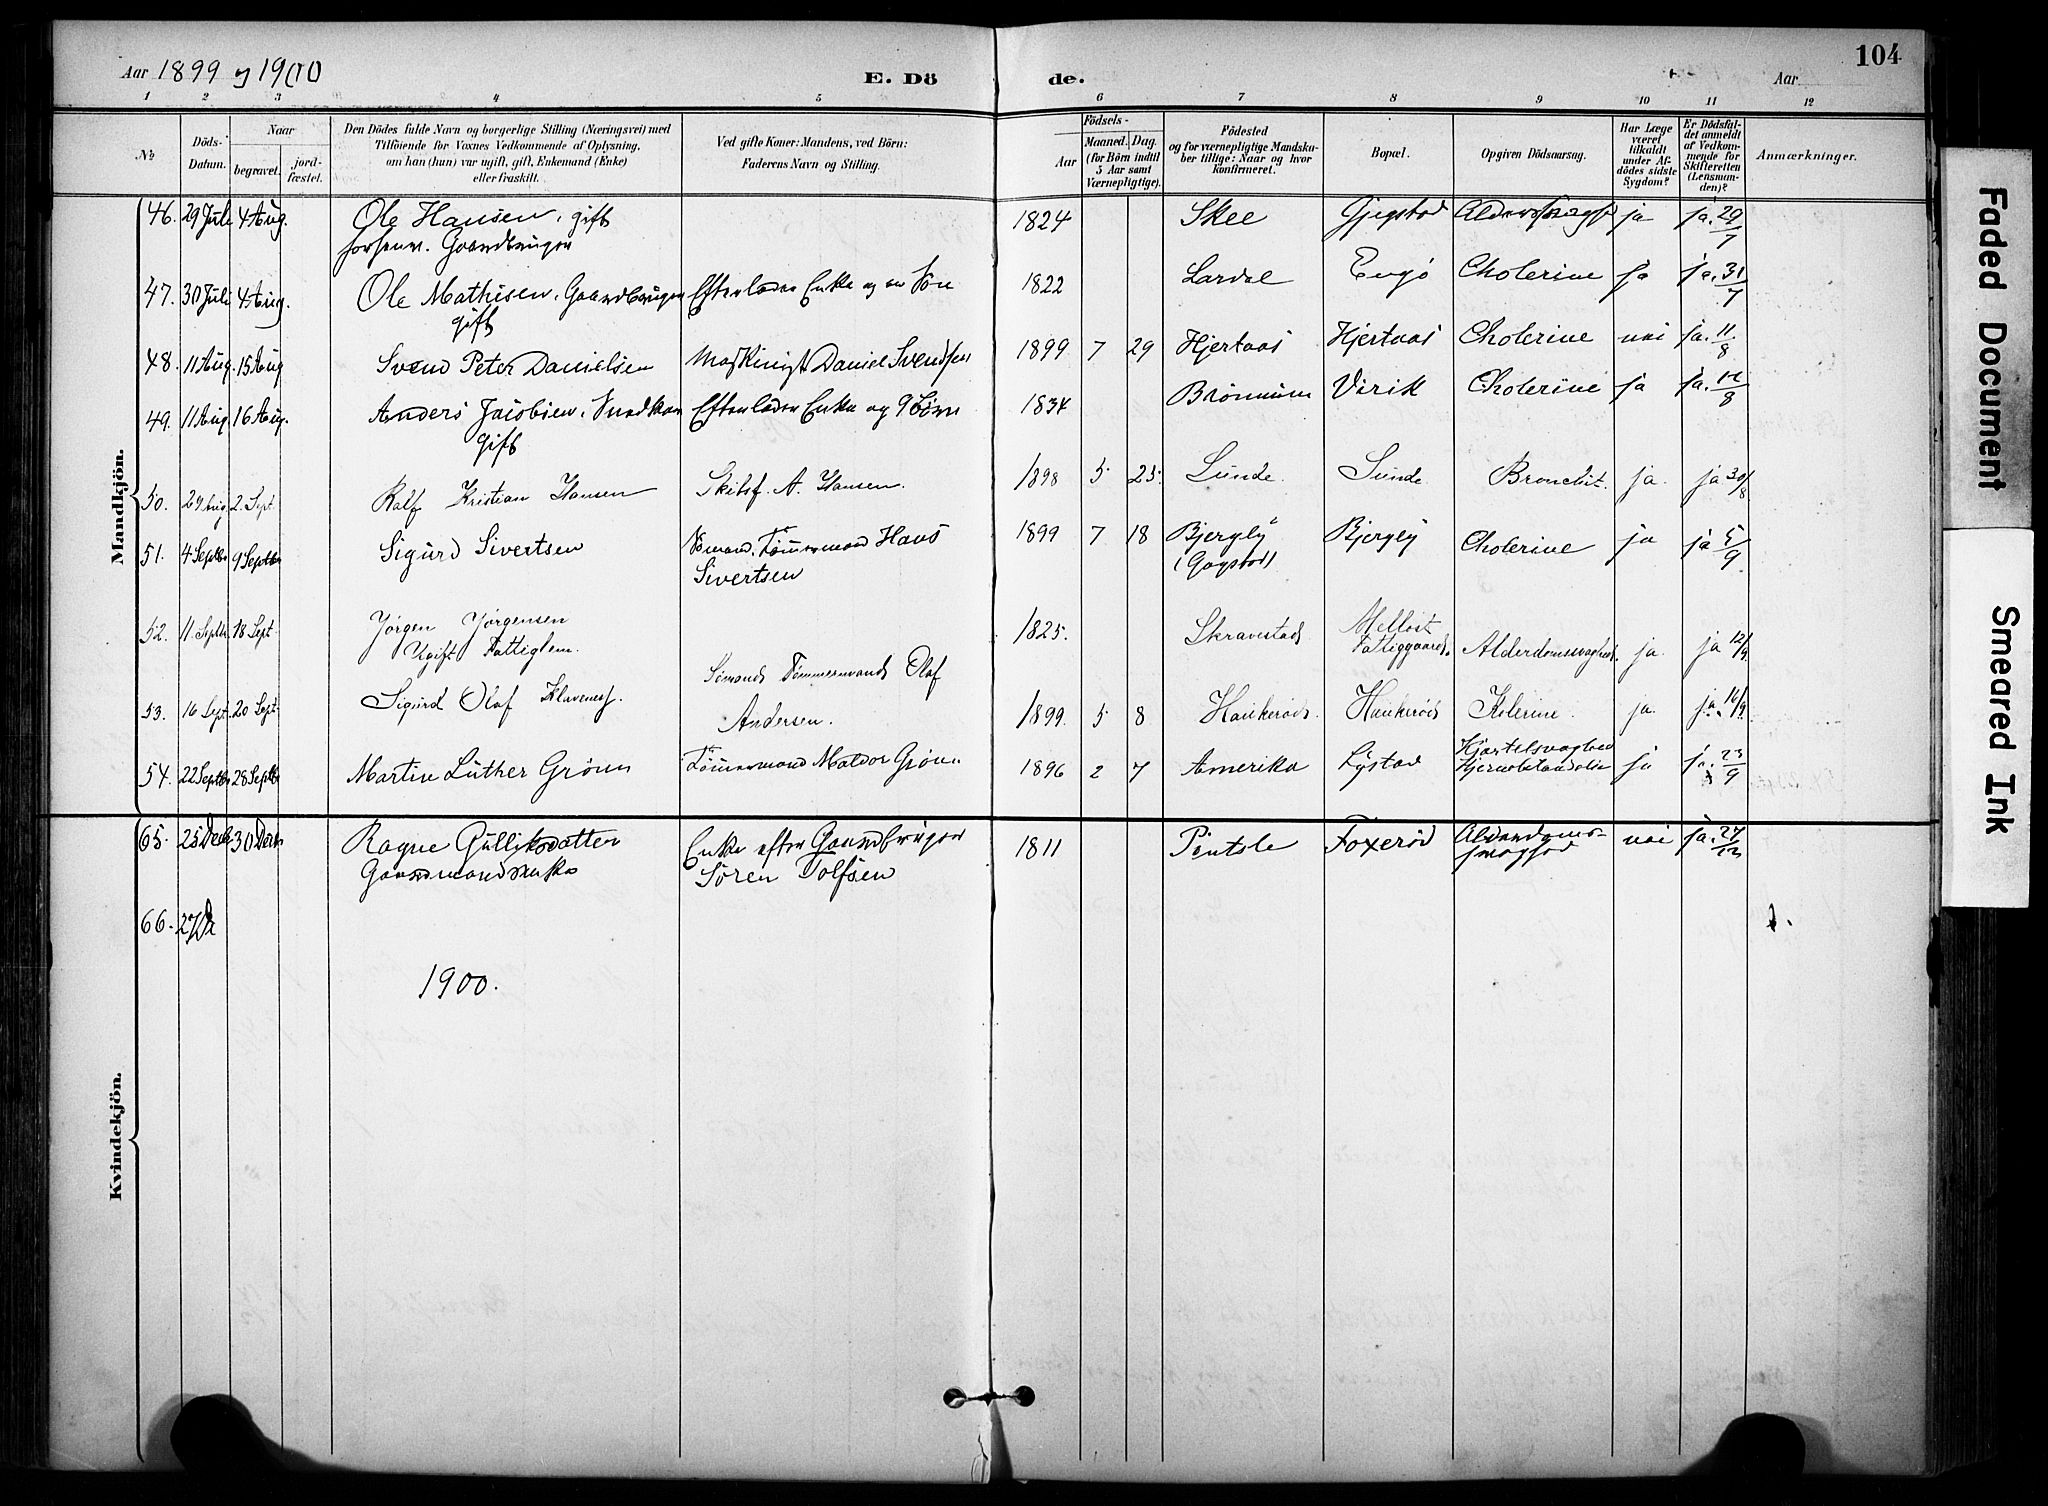 Aar 1899 og 1900
E. Dö
de.
Aar
104
1 2 3 4 5 6 7 8 9 10 11 12
№
Döds-
Datum.
Naar
begravet.
jord-
fæstet.
Den Dödes fulde Navn og borgerlige Stilling (Næringsvei) med
Tilföiende for Voxnes Vedkommende af Oplysning,
om han (hun) var ugift, gift, Enkemand (Enke)
eller fraskilt.
Ved gifte Koner: Mandens, ved Börn:
Faderens Navn og Stilling.
Födsels-
Aar
Maaned. Dag.
(for Börn indtil
5 Aar samt
Værnepligtige).
Födested
og for værnepligtige Mandsku-
ber tillige: Naar og hvor
konfirmeret.
Bopæl.
Opgiven Dödsaarsag.
Har Læge
været
tilkaldt
under Af-
dödes sidste
Sygdom?
Er Dödsfal-
det anmeldt
af Vedkom-
mende for
Skifteretten
(Lensman-
den)?
Anmærkninger.
Mandkjön.
46. 29 Juli 4 Aug. Ole Hansen, gift 1824 Skee ja ja. 29/7
Gaardbruger
47. 30 Juli 4 Aug. Ole Mathisen, Gaardbruger Efterlader Enke og en Søn 1822 Lardal Engö Cholerine ja ja. 31/7
gift
48. 11 Aug. 15 Aug Svend Peter Danielsen Maskinist Daniel Svendsen 1899 7 29 Hjertaas Hjertaas Cholerine nei ja. 11/8
49. 11 Aug. 16 Aug. Anders Jacobsen, Efterlader Enke og 9 Børn 1834 Virik Cholerine ja ja. 12/8
gift
50. 29 Aug. 2. Sept Ralf Kristian Hansen Skibsf. A. Hansen. 1898 5 25. Lunde. Lunde Bronchit. ja. ja 30/8
51. 4 Septbr 9 Septbr Sigurd Sivertsen Sömand, Tömmermand Hans 1899 7 18 Bjergly Bjergly Cholerine ja ja 5/9
Sivertsen
(Gogstad)
52. 11 Septbr. 18 Sept Jørgen Jørgensen 1825. Skravestad Melløst Alderdomssvaghed. ja. ja 12/9.
Ugift Fattiglem.
Fattiggaard.
53. 16 Sept. 20 Sept Sigurd Olaf Klavenes. Sømands Tømmermands Olaf 1899. 5 8 Haukerød. Haukerød Kolerine. ja. ja. 16/9.
Andersen.
54. 22 Septbr 28 Septbr Martin Luther Grönn Tömmermand Maldor Grönn 1896 2 7 Amerika Lystad Hjertesvaghed ja ja. 23/9
Kvindekjön.
65. 25 Decb 30 Decbr Ragne Gulliksdatter Enke efter Gaardbruger 1811 Pintsle Foxerød Alderdoms- nei ja. 27/12
Gaardmandsenke
Sören Tolfsen
svaghed
66. 27/12
1900.
Faded Document
Smeared Ink